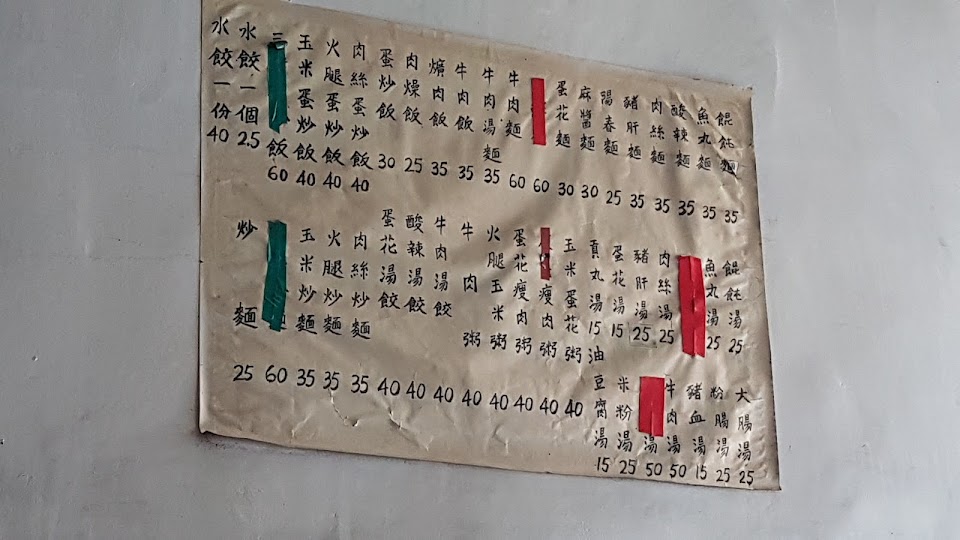 餛飩麵 35
魚丸麵 35
酸辣麵 35
肉絲麵 35
豬肝麵 35
陽春麵 25
麻醬麵 30
蛋花麵 30
60
牛肉麵 60
牛肉湯麵 35
牛肉飯 35
爌肉飯 35
肉燥飯 25
蛋炒飯 30
肉絲蛋炒飯 40
火腿蛋炒飯 40
玉米蛋炒飯 40
三飯 60
水餃一個 2.5
水餃一份 40
餛飩湯 25
魚丸湯 25
肉絲湯 25
豬肝湯 25
蛋花湯 15
貢丸湯 15
玉米蛋花粥 40
瘦肉粥 40
蛋花瘦肉粥 40
火腿玉米粥 40
牛肉粥 40
牛肉湯餃 40
酸辣湯餃 40
蛋花湯餃 40
肉絲炒麵 35
火腿炒麵 35
玉米炒麵 35
60
炒麵 25
大腸湯 25
粉腸湯 25
豬血湯 15
牛肉湯 50
湯 50
米粉湯 25
油豆腐湯 15